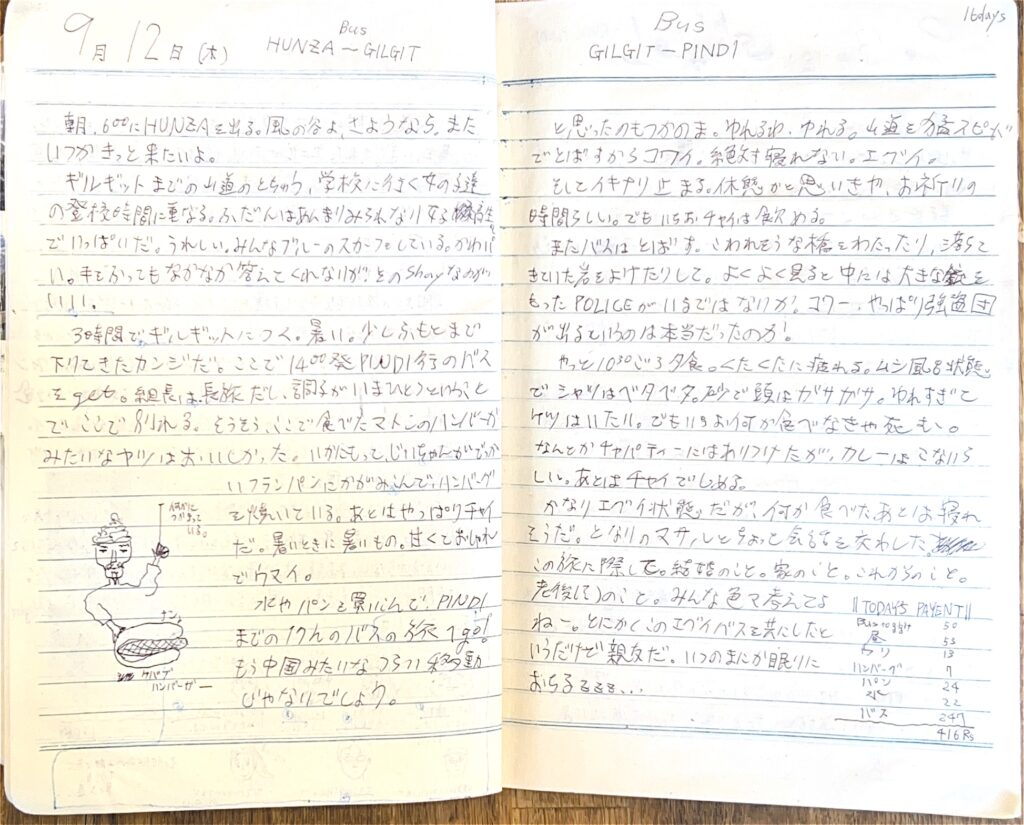 9月12日(木)
Bus
HUNZA〜GILGIT
朝、6:00にHUNZAを出る。風の谷よ、さようなら。また
いつかきっと来たいよ。
ギルギットまでの山道のとちゅう、学校に行く女の子達
の登校時間に重なる。ふだんはあんまりみられない女子校生
でいっぱいだ。うれしい。みんなブルーのスカーフをしている。かわい
い。手をふってもなかなか答えてくれないが、そのshayなのが
いい。
3時間でギルギットにつく。暑い。少しふもとまで
下りてきたカンジだ。ここで14:00発PINDI行のバス
をget。組長は長旅だし、調子がいまひとつということ
でここで別れる。そうそう、ここで食べたマトンのハンバーガー
みたいなヤツはおいしかった。いかにもって、じいちゃんがでっか
いフランパンにかがみこんで、ハンバーグ
を焼いている。あとはやっぱりチャイ
だ。暑いときに暑いもの。甘くておしゃれ
でウマイ。
水やパンを買いこんで、PINDI
までの17hのバスの旅へgo!
もう中国みたいなつらい移動
じゃないでしょう。
何かに
つかまって
いる。
ナン
ケバブ
ハンバーガー
Bus
GILGIT－PINDI
16days
と思ったのもつかのま。ゆれるわ、ゆれる。山道を猛スピード
でとばすからコワイ。絶対寝れない。エグイ。
そしてイキナリ止まる。休憩かと思いきや、お祈りの
時間らしい。でもいちおチャイは飲める。
またバスはとばす。こわれそうな橋をわたったり、落ちて
きていた岩をよけたりして。よくよく見ると中には大きな銃を
もったPOLICEがいるではないか。コワー、やっぱり強盗団
が出るというのは本当だったのか!
やっと10:30ごろ夕食。くたくたに疲れる。ムシ風呂状態
でシャツはベタベタ。砂で頭はガサガサ。ゆれすぎて
ケツはいたい。でもいちおう何か食べなきゃ死ぬ。
なんとかチャパティーにはありつけたが、カレーはこないら
しい。あとはチャイでしめる。
かなりエグイ状態だが、何か食べたあとは寝れ
そうだ。となりのマサルとちょっと会話を交わした
この旅に際して。結婚のこと。家のこと。これからのこと。
老後(!)のこと。みんな色々考えてるよ
ねー。とにかくこのエグイバスを共にしたと
いうだけで親友だ。いつのまにか眠りに
おちるるるる...
TODAYS PAYENT
50
昼 53
ウリ 13
ハンバーグ 7
パン 24
水 22
バス 247
416Rs